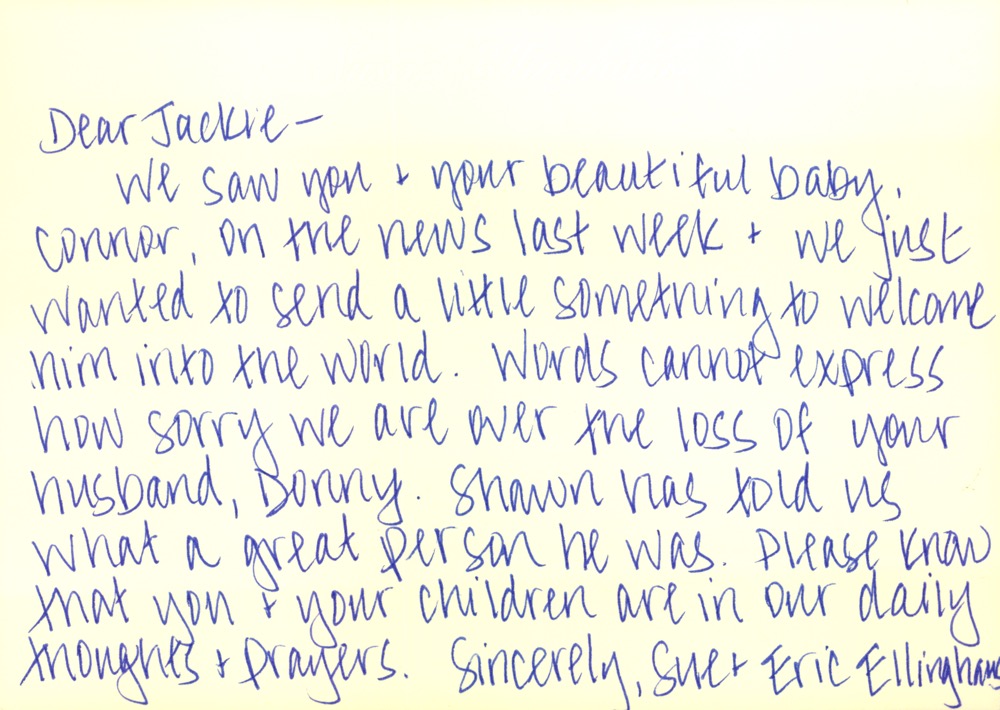 Dear Jackie —
We saw you + your beautiful baby,
Connor, on the news last week + we just
wanted to send a little something to welcome
him into the world. Words cannot express
how sorry we are over the loss of your
husband, Donny. Shawn has told us
what a great person he was. Please know
that you + your children are in our daily
thoughts + prayers. Sincerely, Sue + Eric